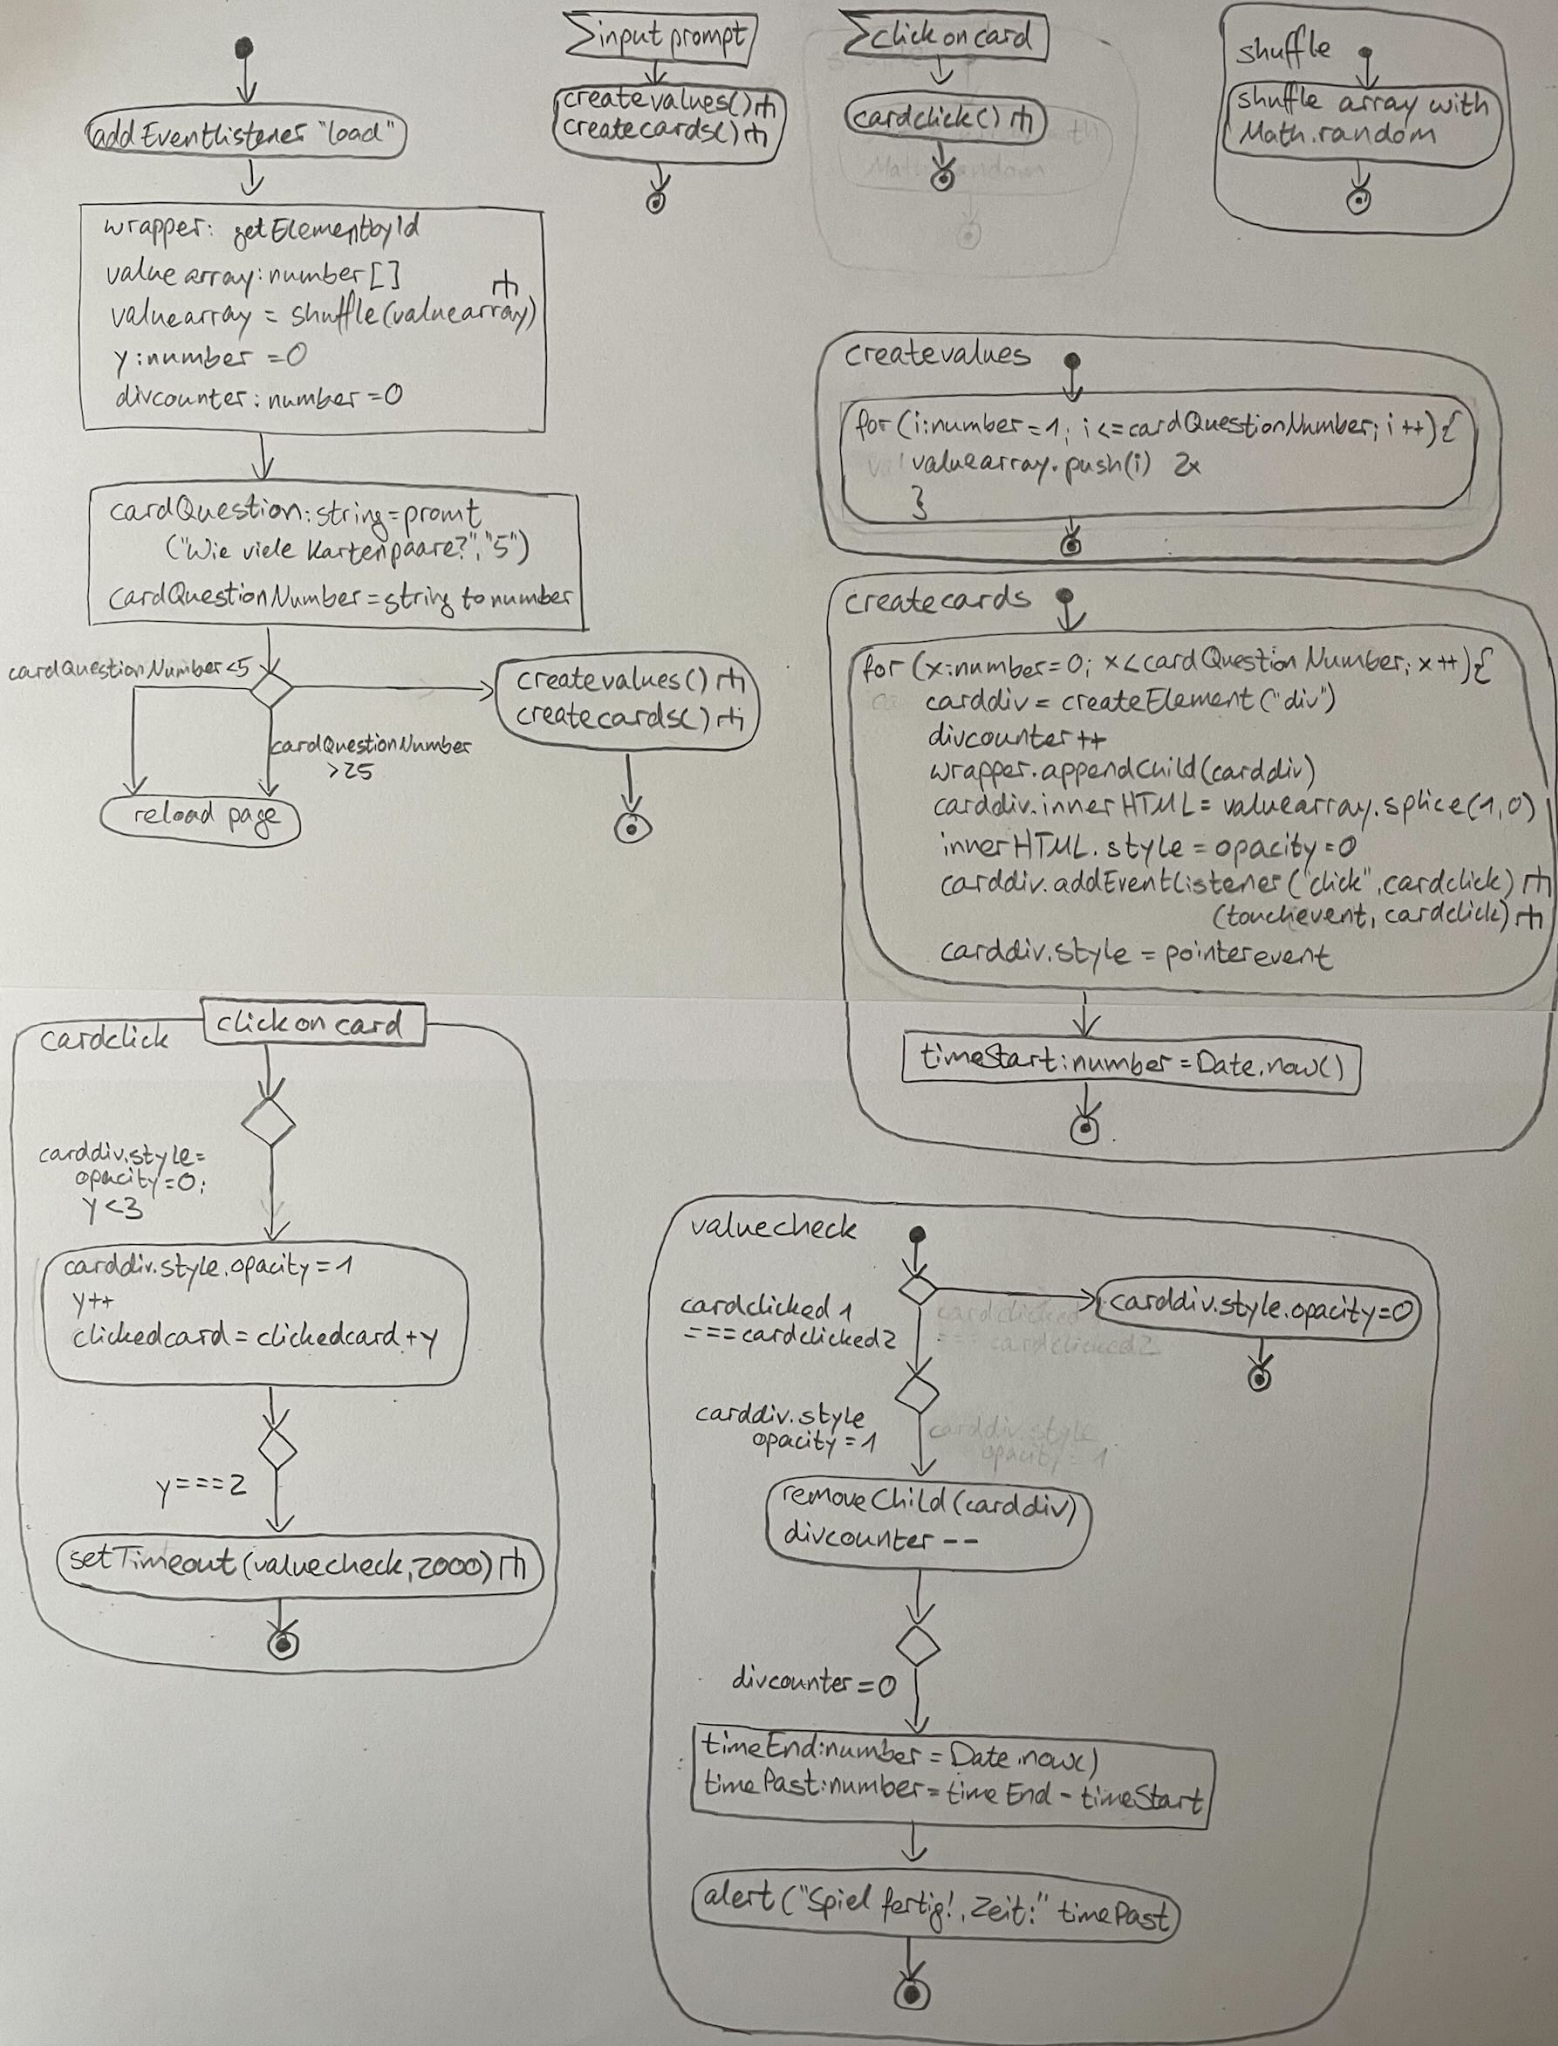 addEventListener "load"
wrapper: getElementbyId
valuearray:number[]
valuearray = shuffle(valuearray)
y:number = 0
divcounter:number = 0
cardQuestion:string=promt
("Wie viele Kartenpaare?","5")
cardQuestionNumber=string to number
cardQuestionNumber<5
cardQuestionNumber
>25
reload page
createvalues()
createcards()
input prompt
createvalues()
createcards()
click on card
cardclick()
shuffle
shuffle array with
Math.random
createvalues
for(i:number=1; i<=cardQuestionNumber; i++){
valuearray.push(i) 2x
}
createcards
for (x:number=0; x<cardQuestionNumber; x++){
carddiv = createElement("div")
divcounter++
wrapper.appendChild(carddiv)
carddiv.innerHTML= valuearray.splice(1,0)
innerHTML.style = opacity=0
carddiv.addEventListener("click",cardclick)
(touchevent, cardclick)
carddiv.style = pointerevent
timeStart:number=Date.now()
cardclick
click on card
carddiv.style=
opacity=0;
y<3
carddiv.style.opacity=1
y++
clickedcard=clickedcard+y
y===2
setTimeout(valuecheck,2000)
valuecheck
cardclicked1
===cardclicked2
carddiv.style.opacity=0
carddiv.style
opacity=1
removeChild(carddiv)
divcounter--
divcounter=0
timeEnd:number=Date.now()
timePast:number=timeEnd-timeStart
alert("Spiel fertig!, Zeit:" timePast